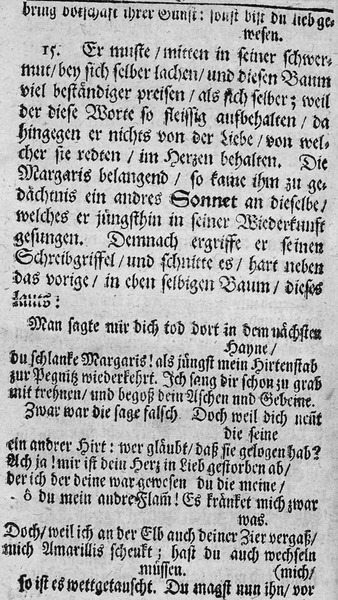 bring botschaft ihrer Gunst: sonst bist du lieb ge-
wesen.
15. Er muste/mitten in seiner schwer-
mut/bey sich selber lachen/und diesen Baum
viel beständiger preisen/als sich selber; weil
der diese Worte so fleissig aufbehalten/da
hingegen er nichts von der Liebe/von wel-
cher sie redten/im Herzen behalten. Die
Margaris belangend/so kame ihm zu ge-
dächtnis ein andres Sonnet an dieselbe/
welches er jüngsthin in seiner Wiederkunft
gesungen. Demnach ergriffe er seinen
Schreibgriffel/und schnitte es/hart neben
das vorige/in eben selbigen Baum/dieses
lauts:
Man sagte mir dich tod dort in dem nächsten
Hayne/
du schlanke Margaris! als jüngst mein Hirtenstab
zur Pegnitz wiederkehrt. Ich sang dir schon zu grab
mit trehnen/und begoß dein Aschen und Gebeine.
Zwar war die sage falsch. Doch weil dich neñt
die seine
ein andrer Hirt: wer gläubt/daß sie gelogen hab?
Ach ja! mir ist dein Herz in Lieb gestorben ab/
der ich der deine war gewesen du die meine/
ô du mein andre Flam! Es kränket mich zwar
was.
Doch/weil ich an der Elb auch deiner Zier vergaß/
mich Amarillis schenkt; hast du auch wechseln
müssen. (mich/
so ist es wettgetauscht. Du magst nun ihn/vor